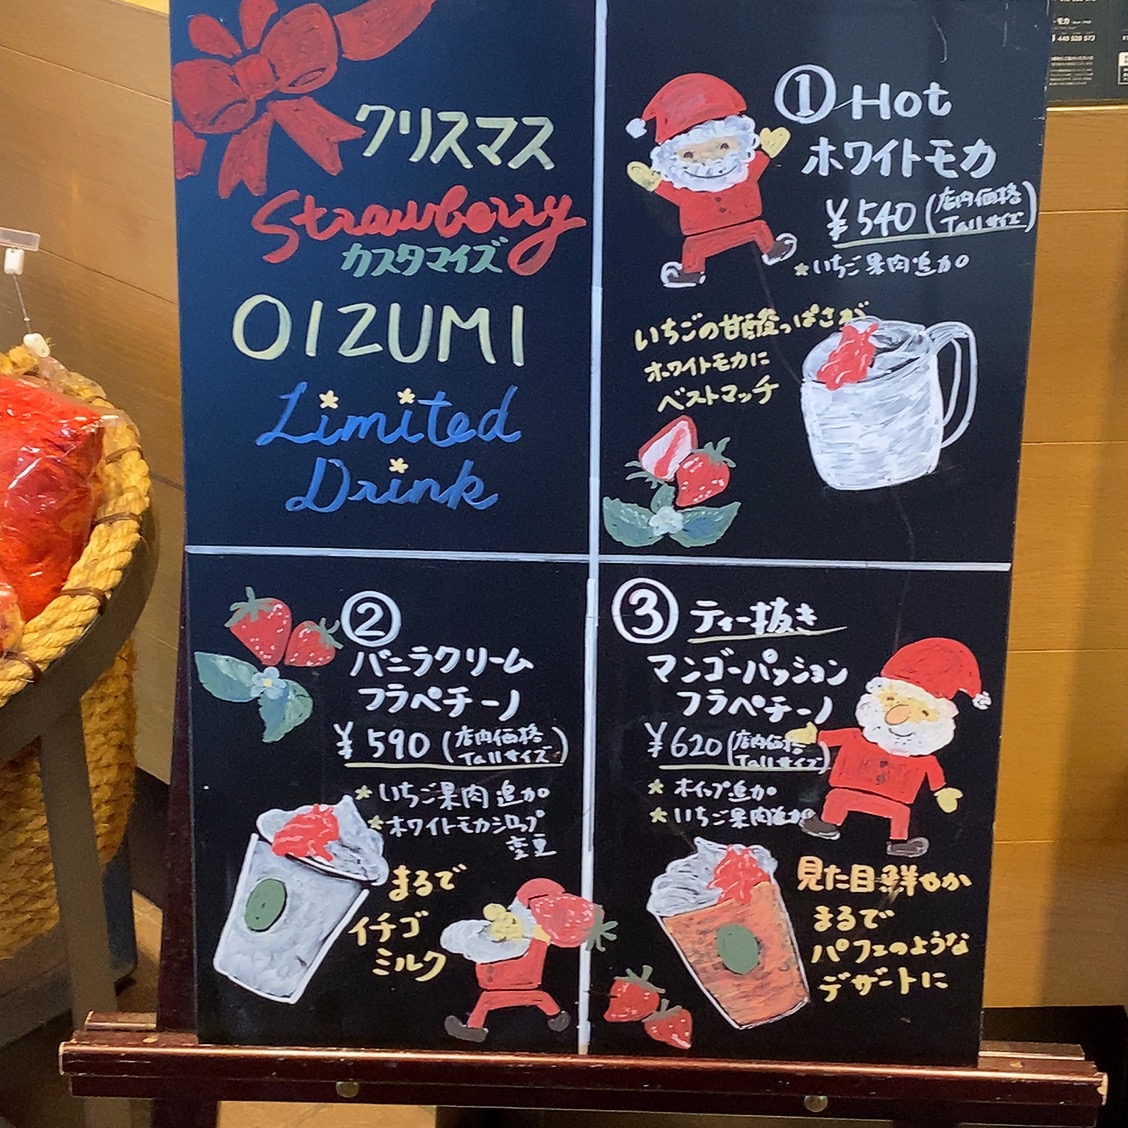 クリスマス
Strawberry
カスタマイズ
OIZUMI
Limited
Drink
① Hot
ホワイトモカ
¥540 (店内価格
Tallサイズ)
*いちご果肉追加
いちごの甘酸っぱさが
ホワイトモカに
ベストマッチ
②
バニラクリーム
フラペチーノ
¥590 (店内価格
Tallサイズ)
*いちご果肉追加
*ホワイトモカシロップ
変更
まるで
イチゴ
ミルク
③ ティー抜き
マンゴーパッション
フラペチーノ
¥620 (店内価格
Tallサイズ)
*ホイップ追加
*いちご果肉追加
見た目鮮やか
まるで
パフェのような
デザートに